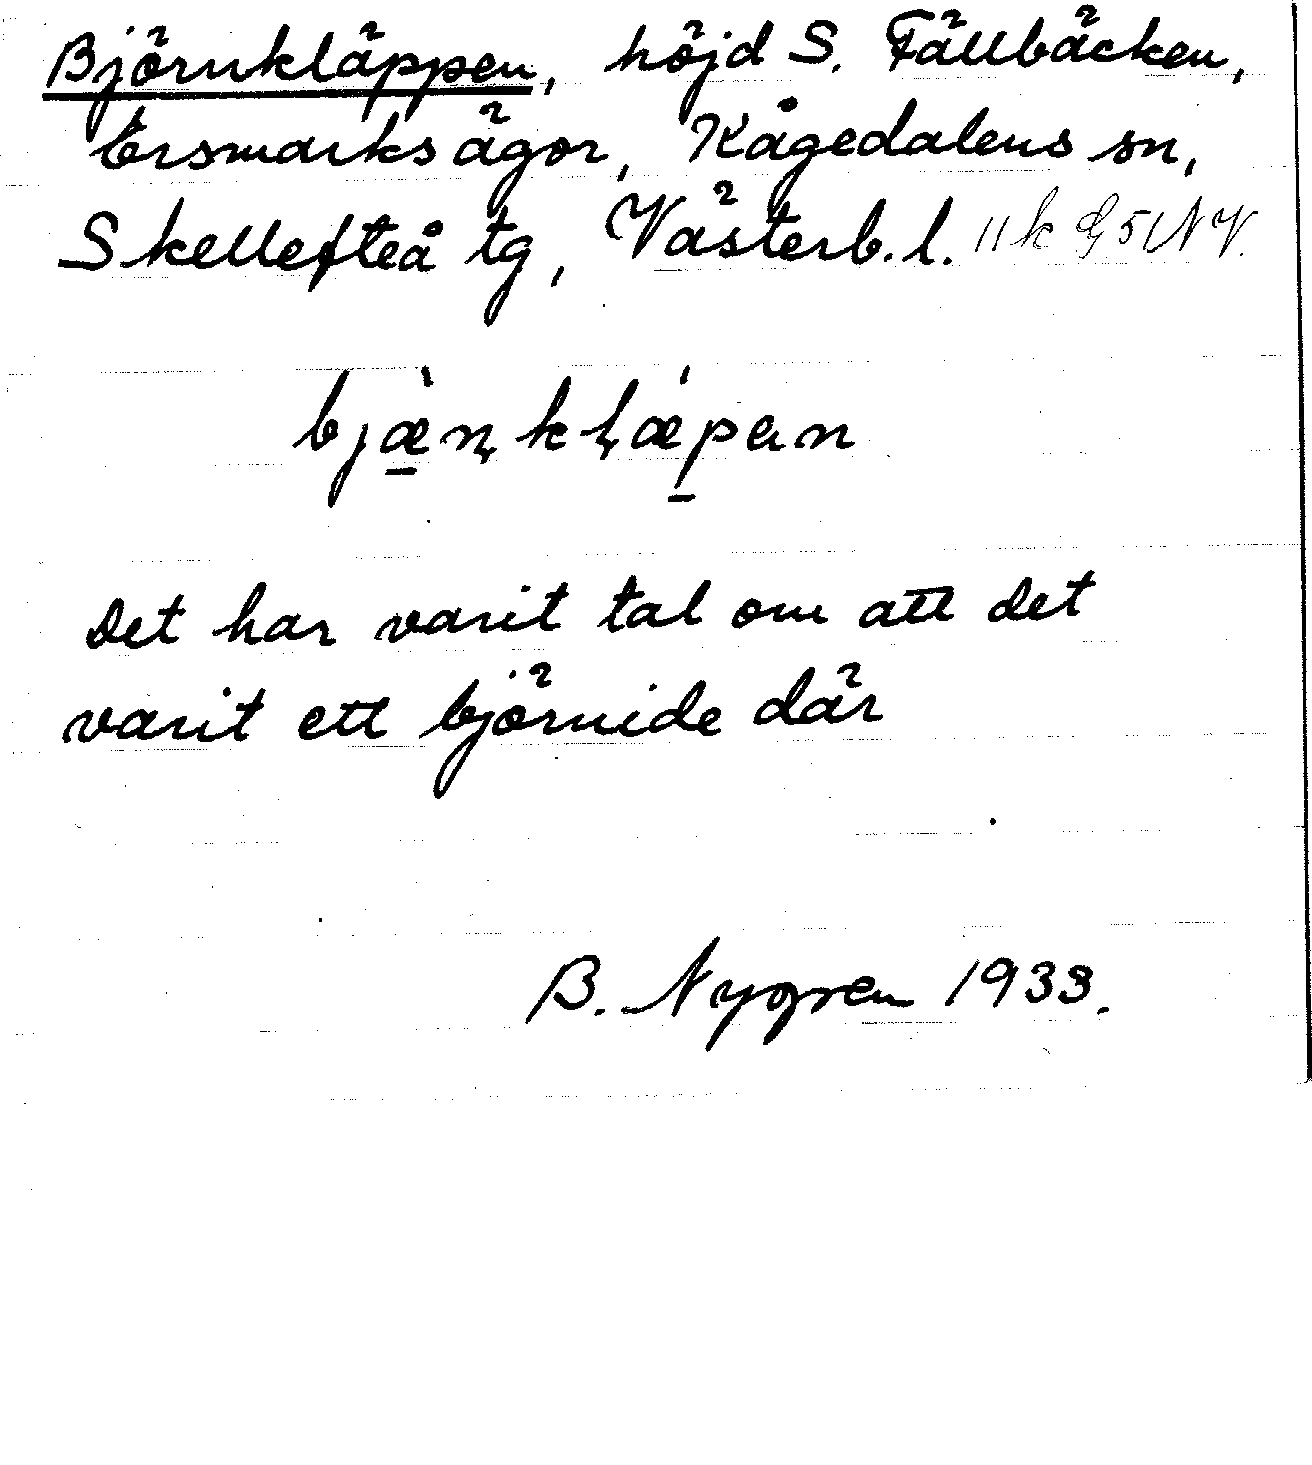 Björnkläppen, höjd S. Fällbäcken,
Ersmarks ägor, Kågedalens sn,
Skellefteå tg, Västerb. l.
bjæ̀ṇkḷǽpan
Det har varit tal om att det
varit ett björnide där
B. Nygren 1933.